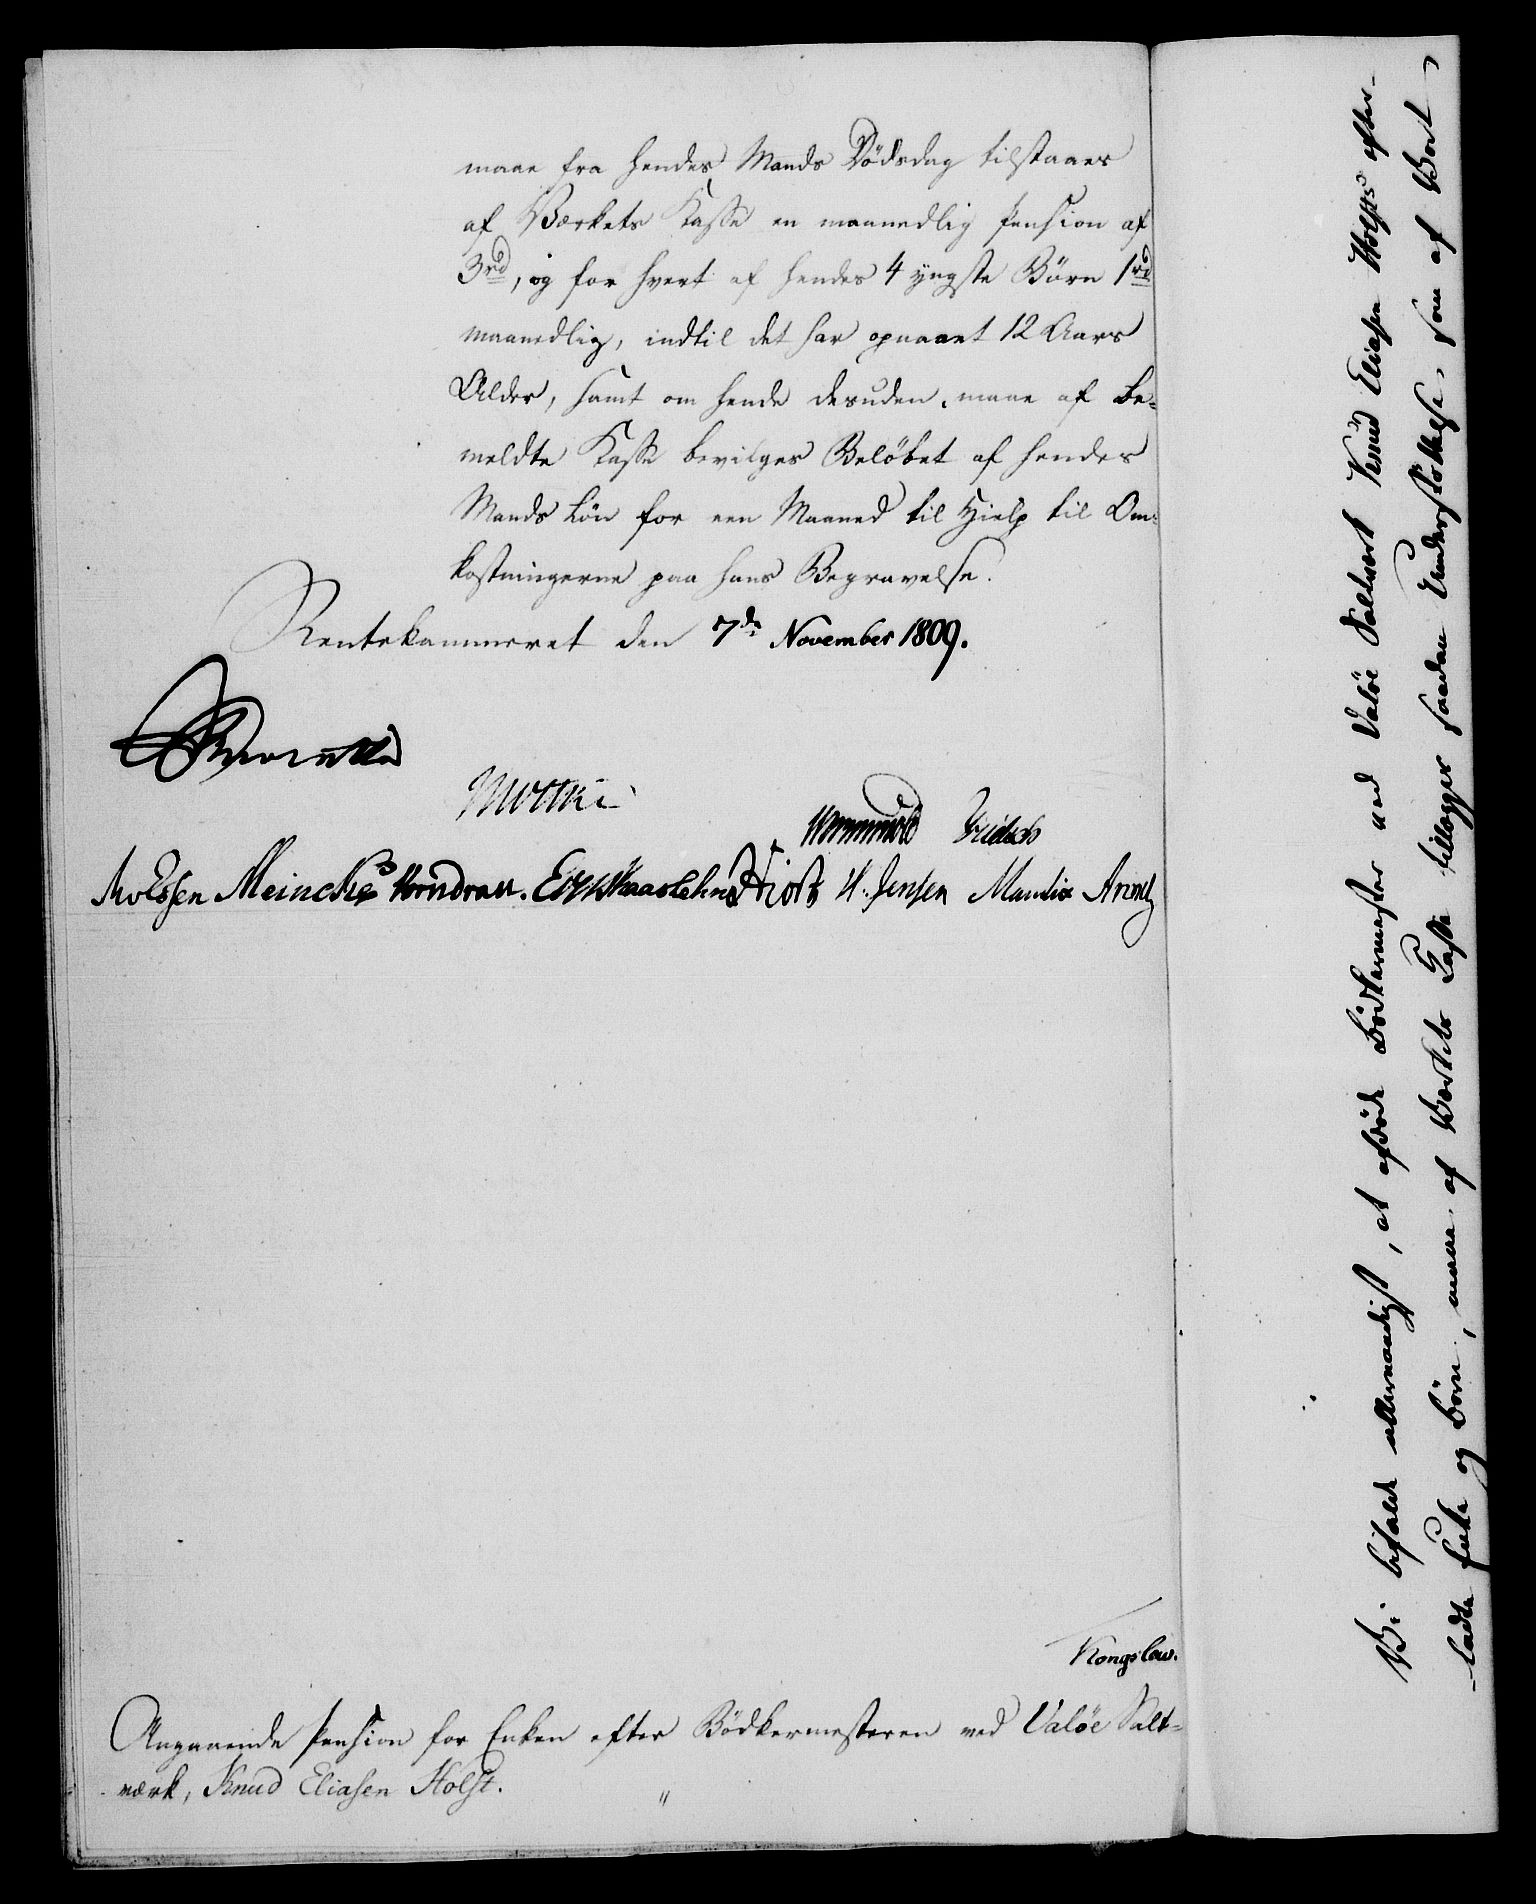 maae fra hendes Mands Dödsdag tilstaaes
af Værkets Kasse en maanedlig Pension af
3rd, og for hvert af hendes 4 yngste Börn 1rd
maanedlig, indtil det har opnaaet 12 Aars
Alder, samt om hende desuden maae af be-
meldte Kasse bevilges Belöbet af hendes
Mands Lön for een Maaned til Hielp til Om-
kostningerne paa hans Begravelse.
Rentekammeret den 7de November 1809.
Meincke Hornemann Hiort H. Jensen Manthey Arentz
Kongslew.
Angaaende Pension for Enken efter Bödkermesteren ved Valöe Salt-
værk, Knud Eliasen Holst.
Vi bifalde allernaadigst, at afdöde Bödkermester ved Valöe Saltværk Knud Eliasen Holsts efter-
ladte Enke og Börn, maae af Værkets Kasse tillægges saadan Understöttelse, som af Vort